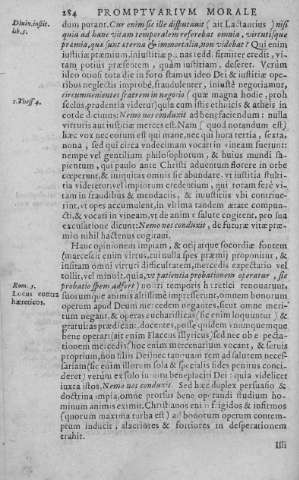 284 PROMPTVARIVM MORALE
Diuin.instit. lib.5.
dum putant. Cur enim sic ille disputauit (ait Lactantius) nisi
quia ad hanc vitam temporalem referebat omnia, virtutisque
præmia, quæ sunt æterna & immortalia, non videbat? Qui enim
justitiæ præmium, iniustitiæ pœnas redd. firmiter credit, vi-
tam potius præsentem, quàm justitiam, deseret. Verùm
ideo otiosi tota die in foro stamus ideo Dei & iustitiæ ope-
ribus neglectis improbè, fraudulenter, iniustè negotiamur,
1.Thess.4.
circumuenientes fratrem in negotio (quæ magna hodie, proh
scelus, prudentia videtur) quia cum istis ethnicis & atheis in
corde dicimus: Nemo nos conduxit ad benefaciendum: nulla
virtutis aut iustitiæ merces est. Nam (quod notandum est)
hæc vox nec eorum est qui manè, nec qui hora tertia, sexta,
nona, sed qui circa vndecimam vocati in vineam fuerunt:
nempe vel gentilium philosophorum, & huius mundi sa-
pientum, qui paulò ante Christi aduentum florere in orbe
cœperunt, & iniquitas omnis sic abundare, vt iustitia stulti-
tia videretur, vel impiorum credentium, qui totam ferè vi-
tam in fraudibus & mendaciis, & iniustitiis vbi contriue-
rint, vt opes accumulent, in vltima tandem ætate compun-
cti, & vocati in vineam, vt de animæ salute cogitent, pro sua
excusatione dicunt: Nemo nos conduxit, de futuræ vitæ præ-
mio nihil hactenus cogitaui.
Hanc opinionem impiam, & otij atque socordiæ fontem
(marcescit enim virtus, cui nulla spes præmij proponitur, &
insitam omni virtuti difficultatem, mercedis expectatio vel
tollit, vel minuit, quia, vt patientia probationem operatur, sic
Rom. 5.
probatio spem adfert) nostri temporis hæretici renouarunt,
Locus contra hæreticos.
suorumque animis altissimè impresserunt, omnem bonorum
operum apud Deum mercedem negantes, sicut omne meri-
tum negant, & opera eucharisticas (sic enim loquuntur) &
gratulatiuas prædicant: docentes, posse quidem vnumquemque
bene operari (ait enim Flaccus Illyricus) sed nec ob expecta-
tionem mercedis, hoc enim mercenarium vocant, & seruis
proprium, non filiis Dei: nec tanquam rem ad salutem neces-
sariam (sic enim illorum sola & specialis fides penitus conci-
deret) verùm ex solo intuitu beneplaciti Dei: quia videlicet
iuxta istos, Nemo nos conduxit. Sed hæc duplex persuasio &
doctrina impia, omne prorsus bene operandi studium ho-
minum animis eximit. Christianos enim frigidos & infirmos
(quorum maxima turba est) ad bonorum operum contem-
ptum inducit, alacriores & fortiores in desperationem
trahit.